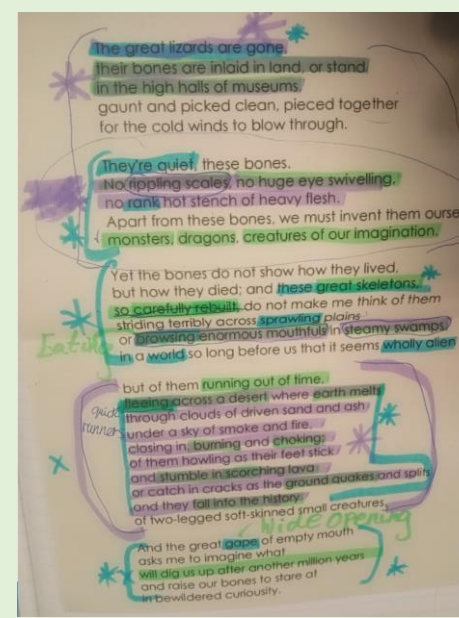 The great lizards are gone,
their bones are inlaid in land, or stand
in the high halls of museums,
gaunt and picked clean, pieced together
for the cold winds to blow through.
They're quiet, these bones.
No rippling scales, no huge eye swivelling,
no rank hot stench of heavy flesh.
Apart from these bones, we must invent them ourse
monsters, dragons, creatures of our imagination.
Yet the bones do not show how they lived,
but how they died; and these great skeletons,
so carefully rebuilt, do not make me think of them
striding terribly across sprawling plains
or browsing enormous mouthfuls in steamy swamps,
Eating
in a world so long before us that it seems wholly alien
but of them running out of time,
fleeing across a desert where earth melts
through clouds of driven sand and ash
runners
under a sky of smoke and fire,
closing in, burning and choking;
of them howling as their feet stick
and stumble in scorching lava
or catch in cracks as the ground quakes and splits
and they fall into the history
of two-legged soft-skinned small creatures.
Wide opening
And the great gape of empty mouth
asks me to imagine what
will dig us up after another million years
and raise our bones to stare at
in bewildered curiousity.